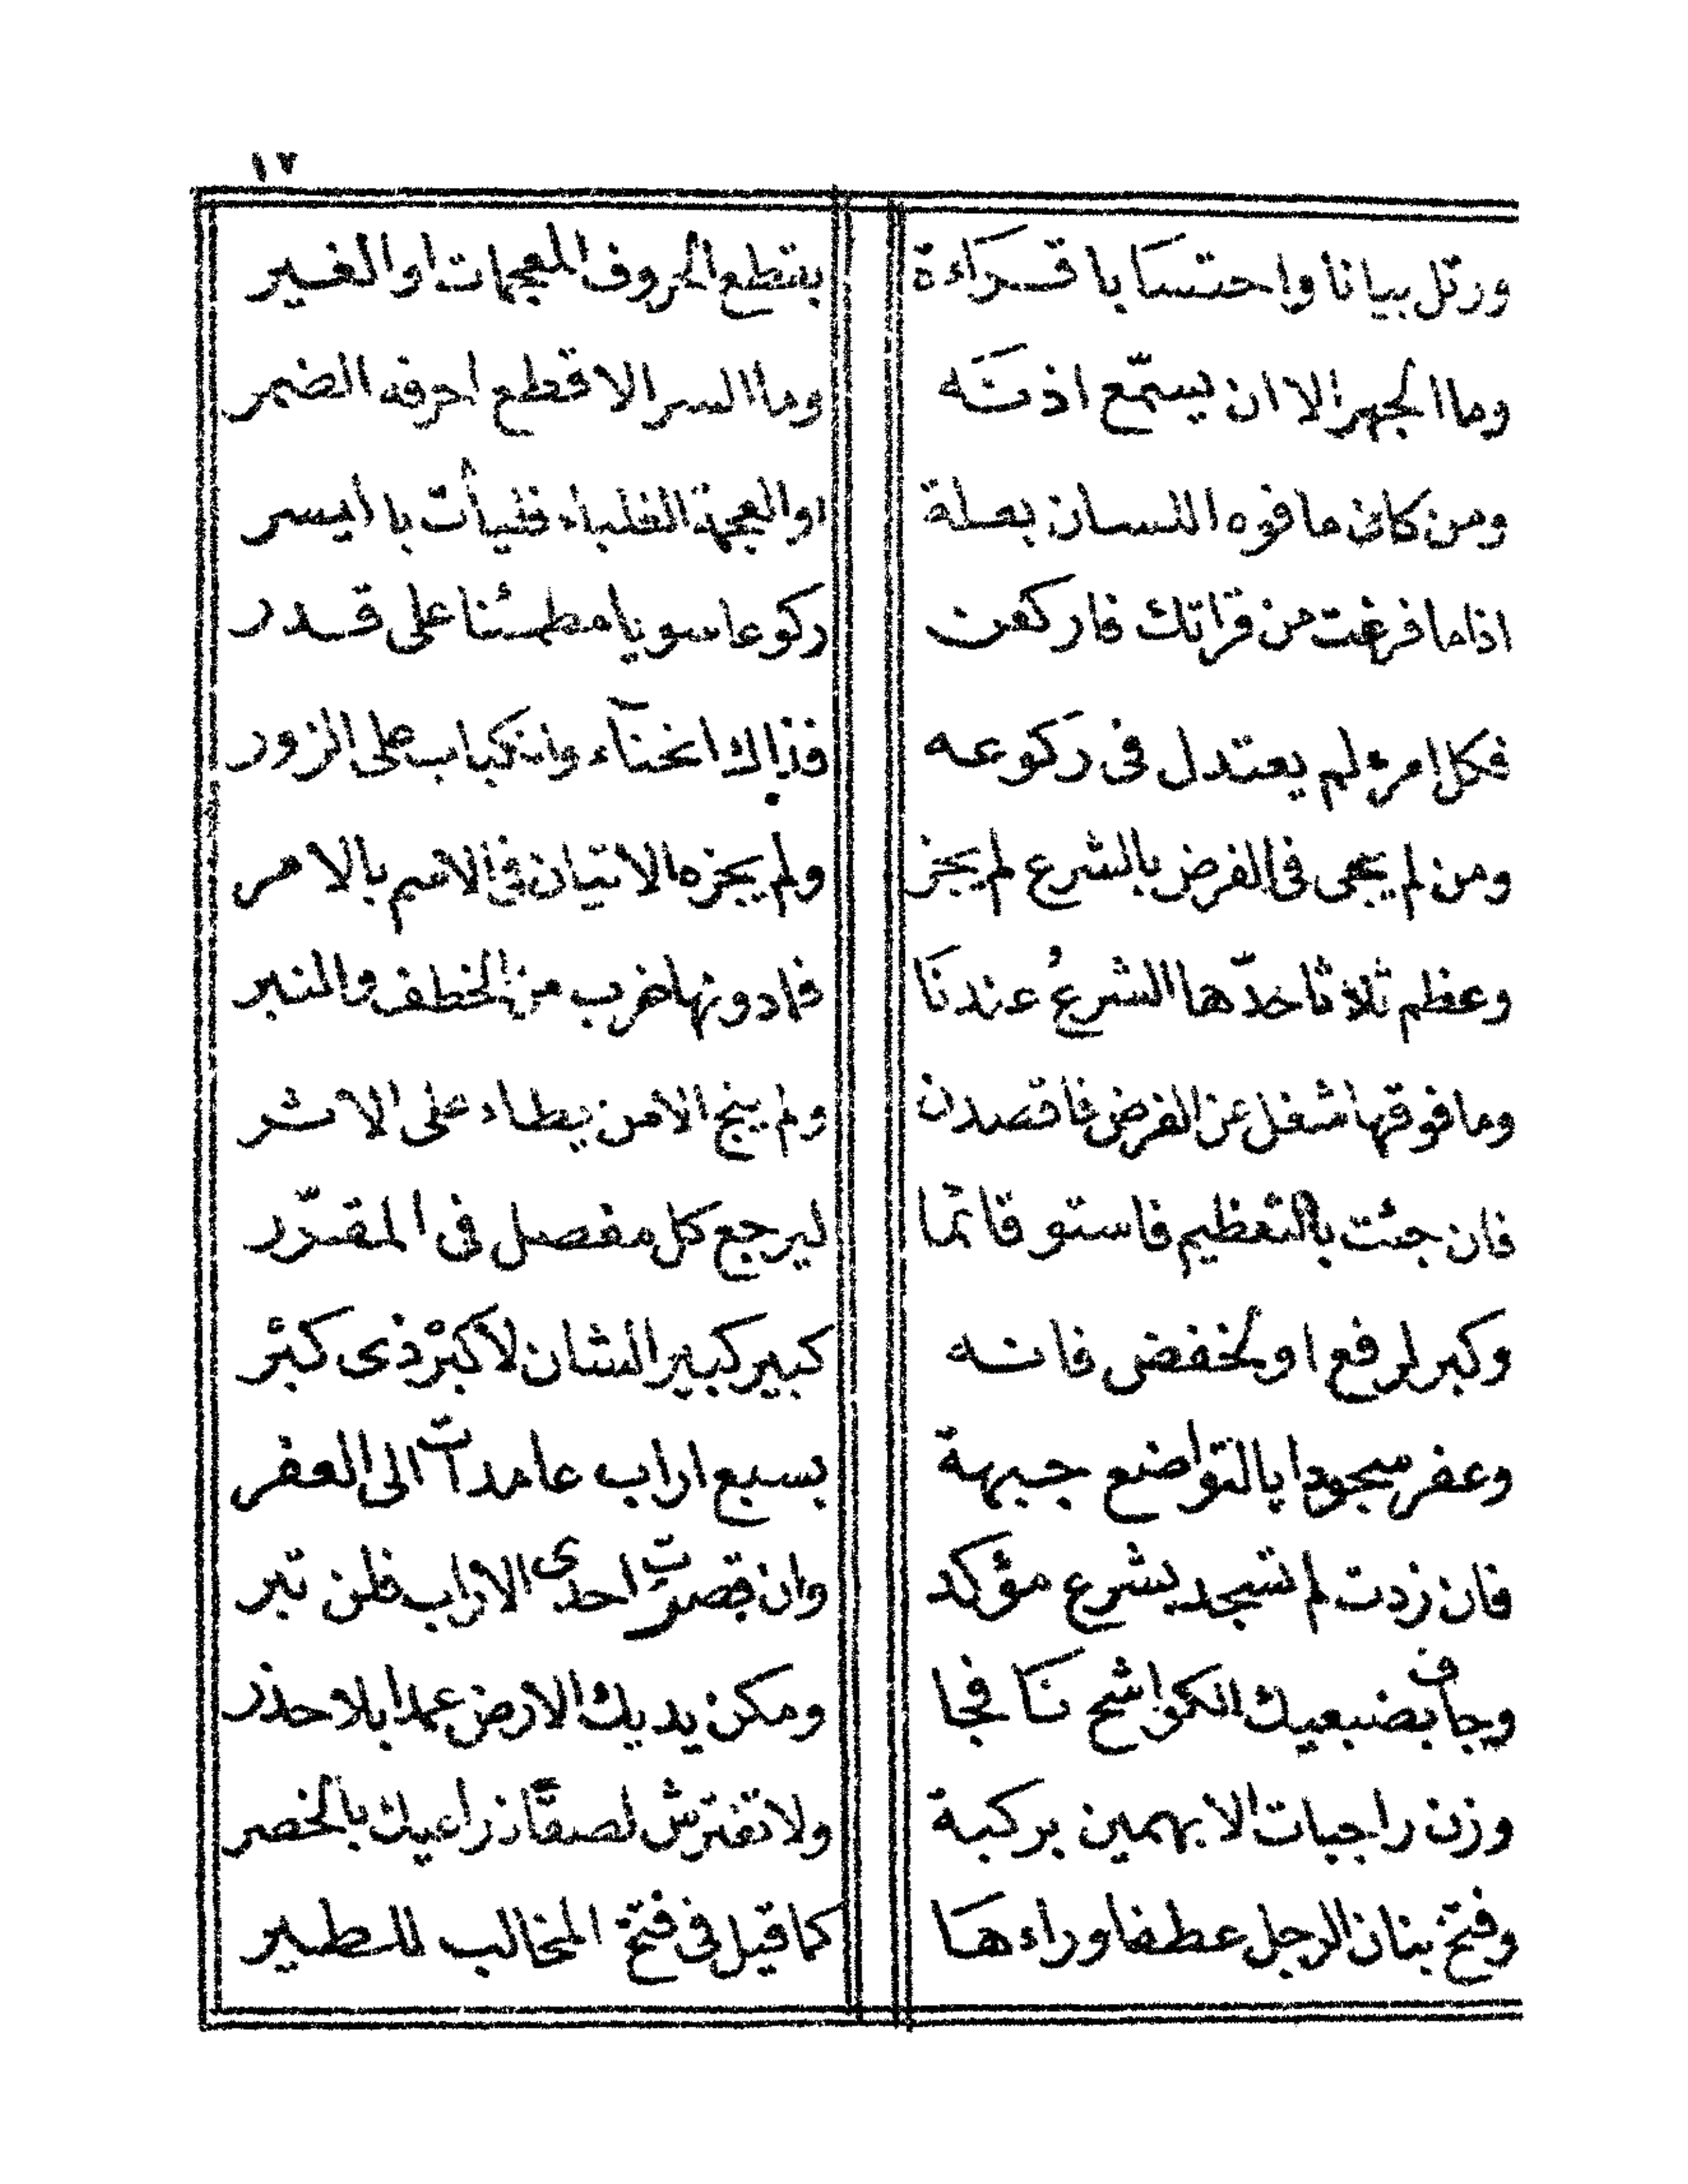 ١٧
ورتل بيانا واحتسابا قراءة بقطع الحروف المعجمات او الغير
وما الجهر الا ان يستمع اذنه وما السر الا قطع احرفه الضمر
ومن كان ما فوه اللسان بعلة او العجمة الغلباء فليأت با ايسر
اذا ما فرغت من قراتك فاركعن ركوعا سويا مطمئنا على قدر
فكل امرئ لم يعتدل فى ركوعه فذاك انحناء وانكباب على الزور
ومن لم يجى فى الفرض بالشرع لم يجز ولم يجزه الاتيان فى الاسم بالامر
وعظم ثلاثا حدّها الشرعُ عندنا فما دونها ضرب من الخطف والنبر
وما فوقها شغل عن الفرض فاقصدن ولم ينج الا من يطاء على الاثر
فان جئت بالتعظيم فاستو قائما ليرجع كل مفصل فى المقدّر
وكبر لرفع او لخفض فانه كبير كبير الشان لاكبْر ذى كبْر
وعفر سجودا بالتواضع جبهة بسبع اراب عامدات الى العفر
فان زدت لم تسجد بشرع مؤكد وان قصرت احدى الاراب فلن تبر
وجاف بضبعيك الكواشح نافجا ومكن يديك الارض عمدا بلا حذر
وزن راجبات الابهمين بركبة ولا تفترش لصقا ذراعيك بالخصر
وفتخ بنان الرجل عطفا وراءها كما قيل فى فتخ المخالب للطير